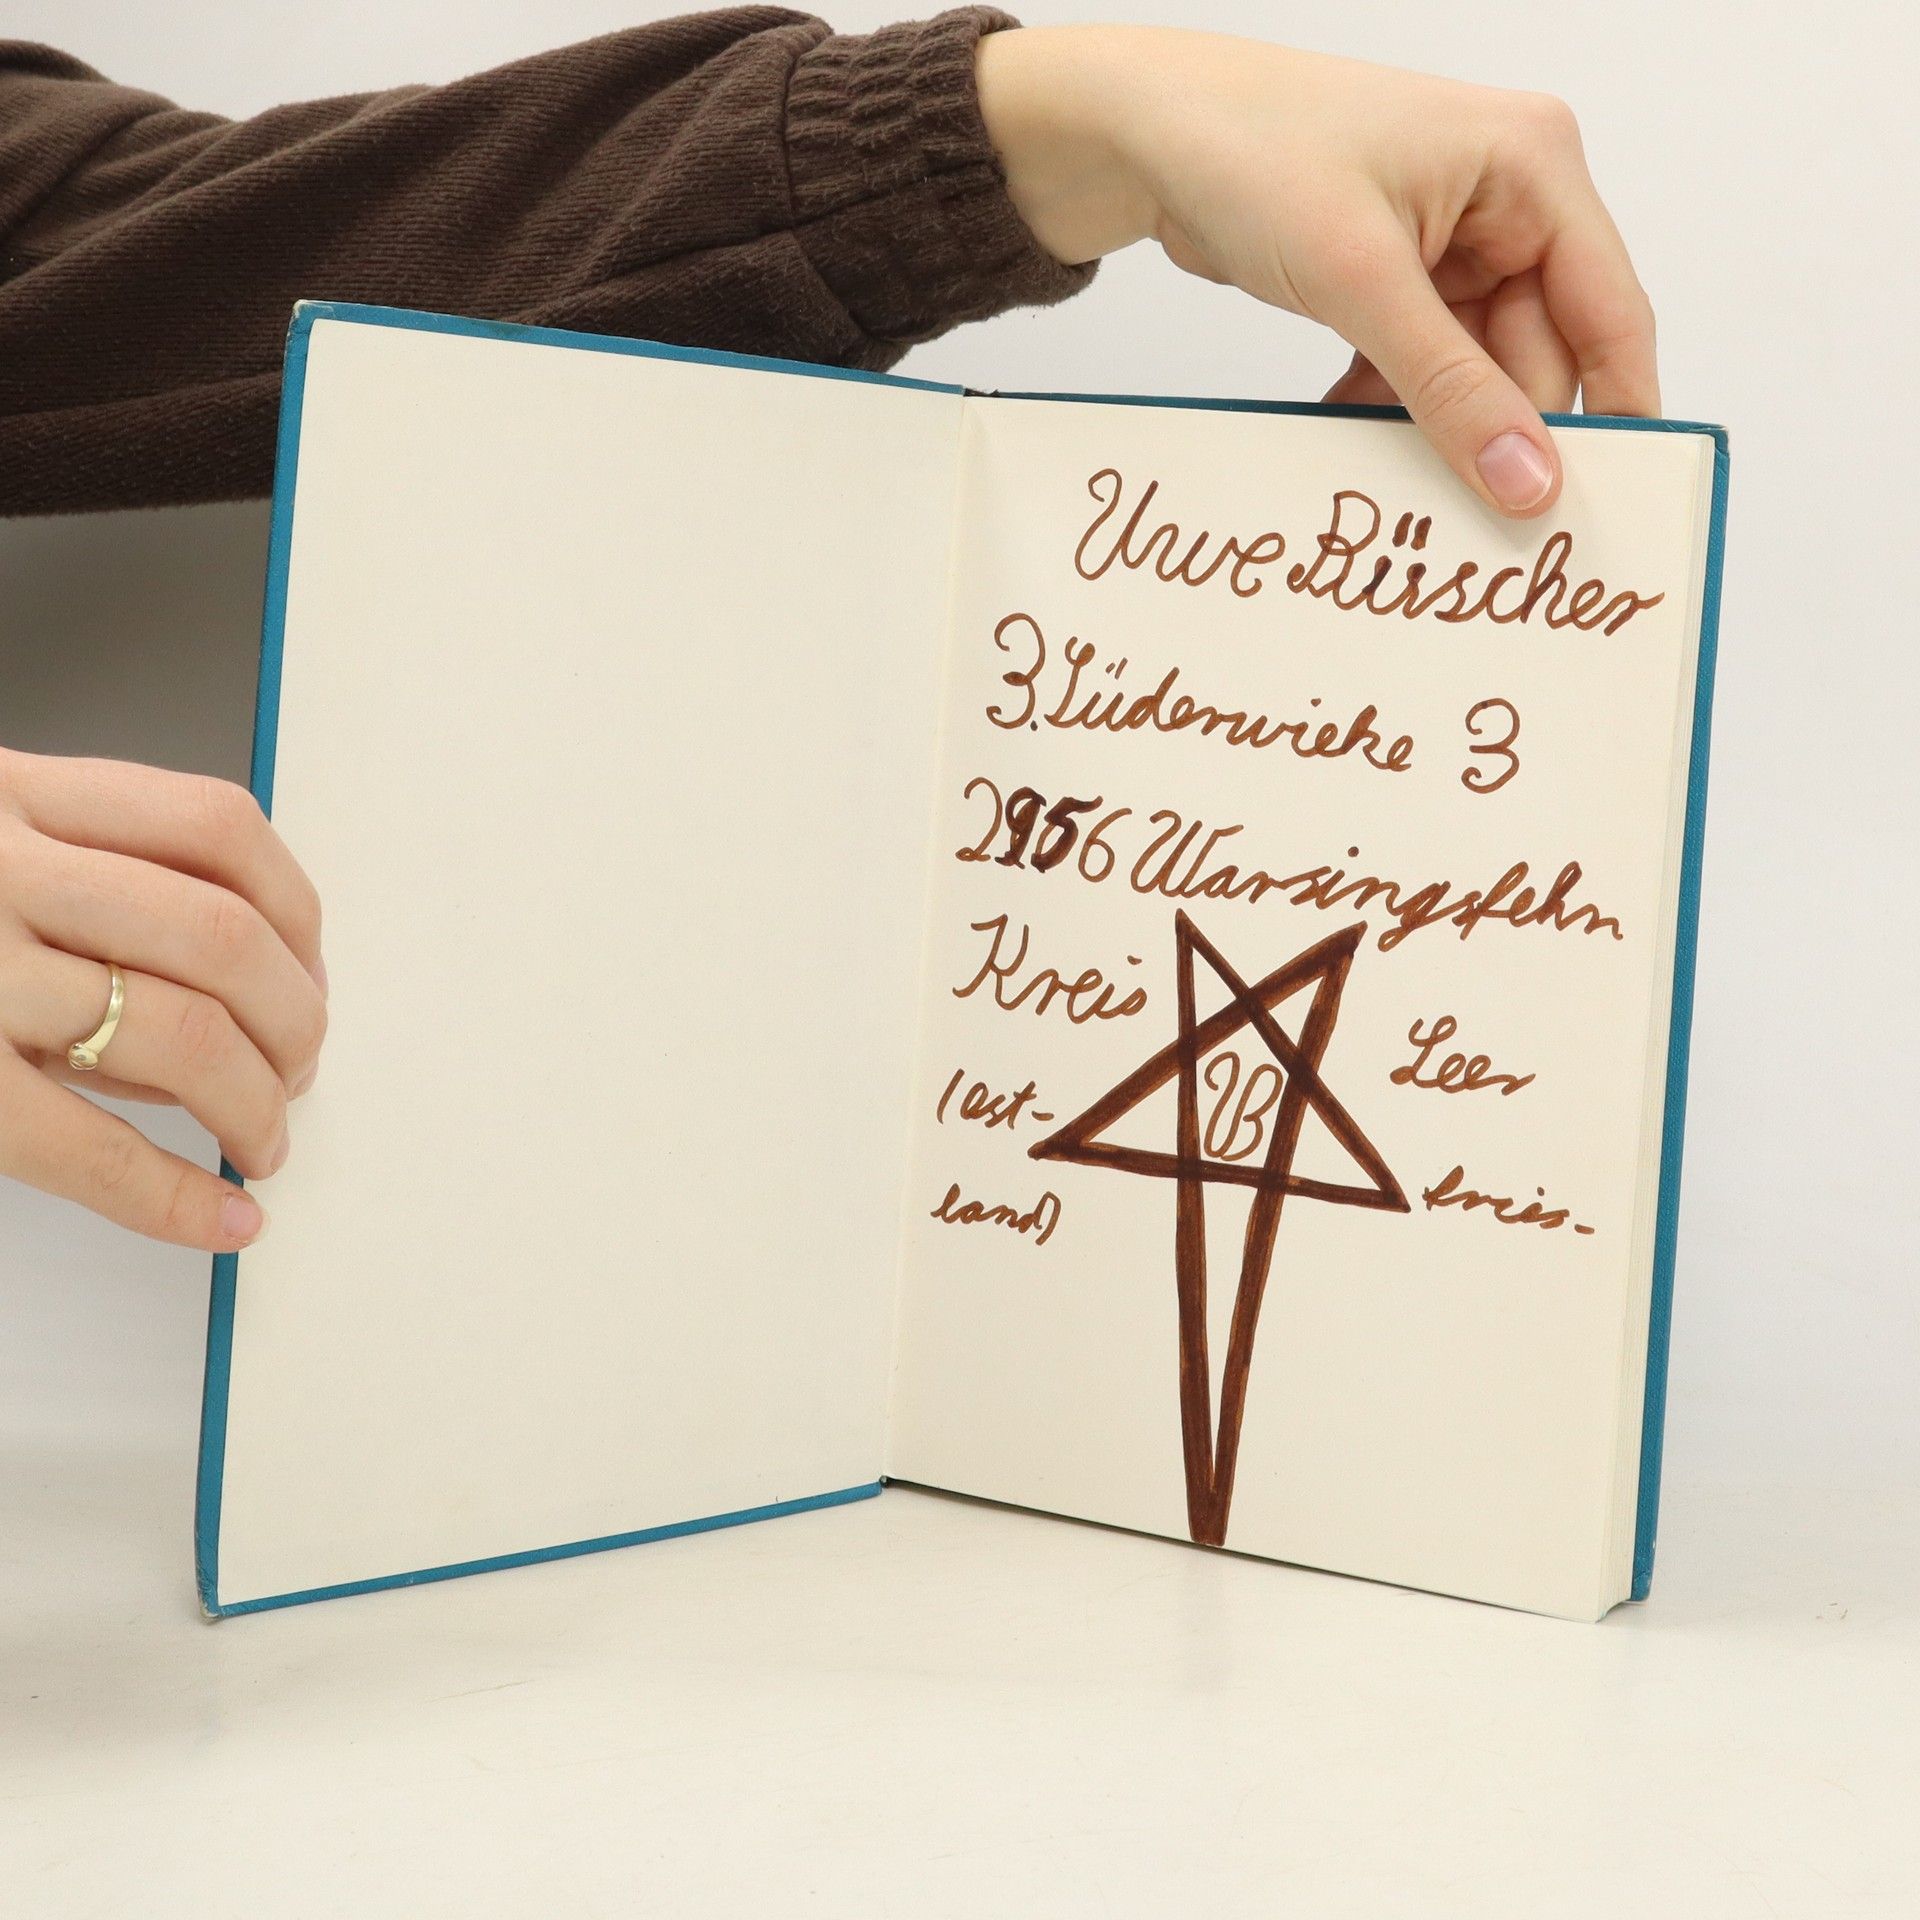 Uwe Büscher
3. Lüderwieke 3
2956 Warsingsfehn
Kreis Leer
(ost-
fries-
land)
UB